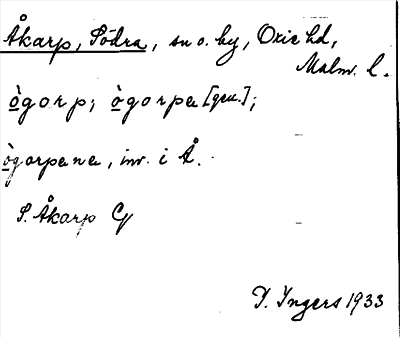 Åkarp, Södra, sn o. by, Oxie hd,
Malm. l.
ògorp; ògorpa [gen.];
ògorpana, inv. i Å.
S. Åkarp G
I. Ingers 1933